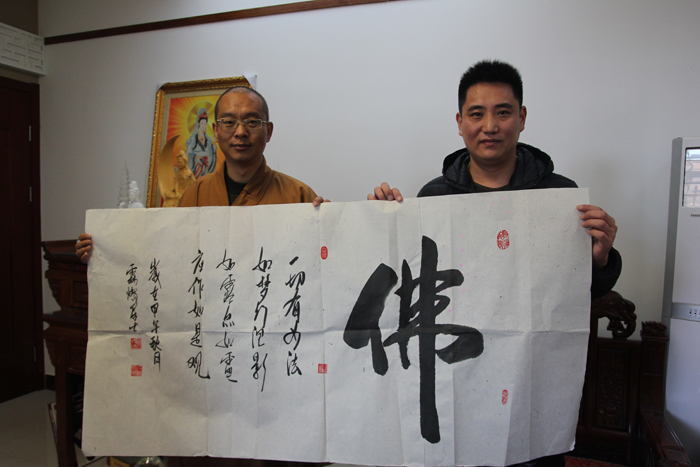 佛
一切有为法
如梦幻泡影
如露亦如電
应作如是观
歲在甲午秋月
居士